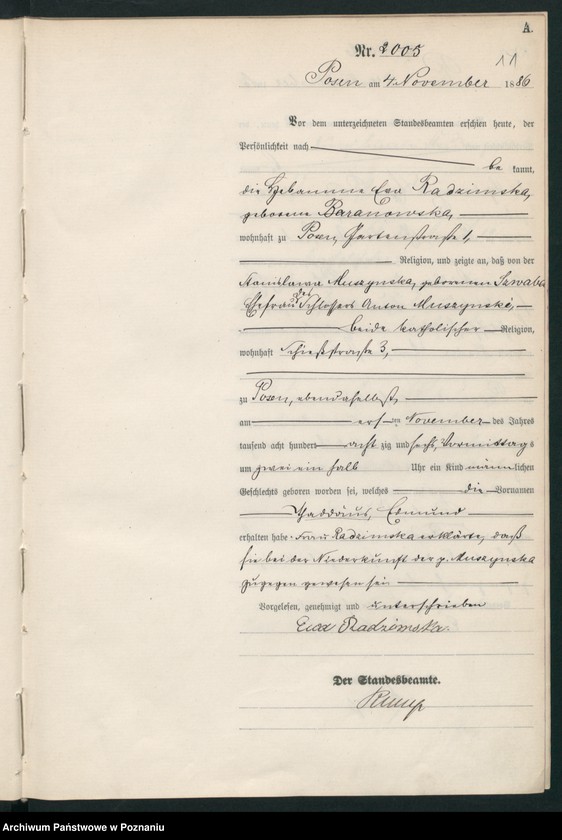 A.
11
Nr. 2005
Posen am 4 November 1886
Vor dem unterzeichneten Standesbeamten erschien heute, der
Persönlichkeit nach
be kannt,
die Hebamme Eva Radzimska,
geborene Baranowska,
wohnhaft zu Posen, Gartenstraße 1,
Religion, und zeigte an, daß von der
Stanislawa Muszynska, geborenen
Ehefrau des Schlossers Anton Muszynski,
beide katholischer Religion,
wohnhaft Schießstraße 3,
zu Posen, ebendaselbst,
am ersten November des Jahres
tausend acht hundert acht zig und sechs, Vormittags
um zwei ein halb Uhr ein Kind männlichen
Geschlechts geboren worden sei, welches die Vornamen
Thaddäus, Edmund
erhalten habe. Frau Radzimska erklärte, daß
sie bei der Niederkunft der p. Muszynska
zugegen gewesen sei
Vorgelesen, genehmigt und unterschrieben
Ewa Radzimska.
Der Standesbeamte.
Archiwum Państwowe w Poznaniu